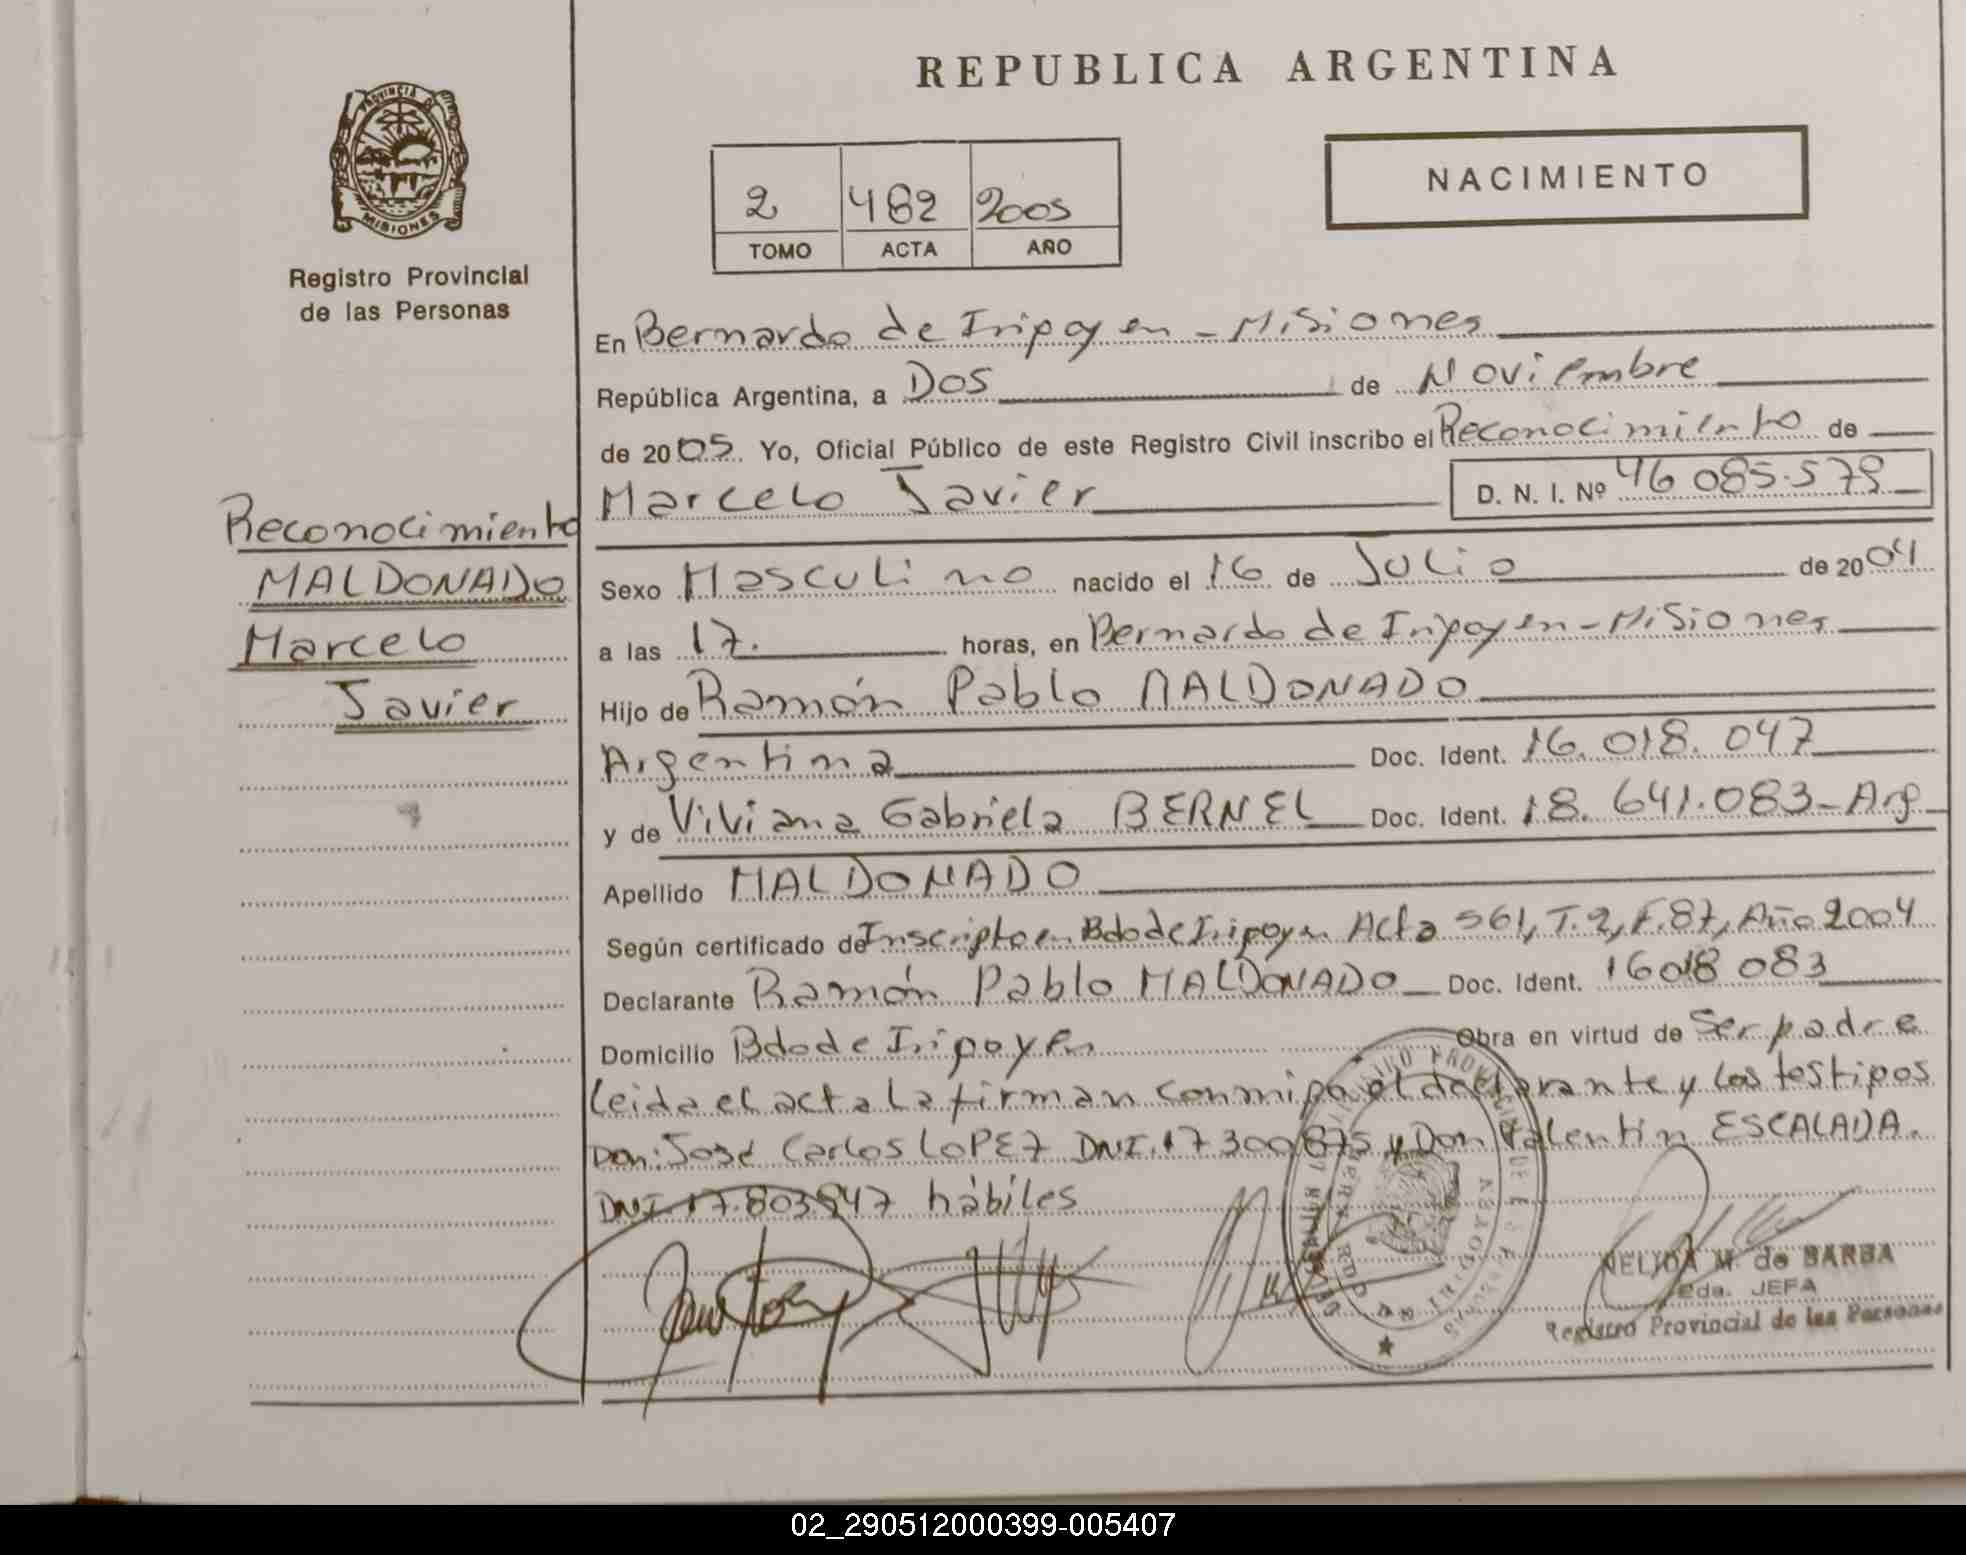 REPUBLICA ARGENTINA
PROVINCIA DE
MISIONES
Registro Provincial
de las Personas
2 482 2005
TOMO ACTA AÑO
NACIMIENTO
En Bernardo de Irigoyen - Misiones
República Argentina, a Dos de Noviembre
de 2005. Yo, Oficial Público de este Registro Civil inscribo el Reconocimiento de
Marcelo Javier D. N. I. Nº 46 085.579
Reconocimiento
MALDONADO
Marcelo
Javier
Sexo Masculino nacido el 16 de Julio de 2004
a las 17. horas, en Bernardo de Irigoyen - Misiones
Hijo de Ramón Pablo MALDONADO
Argentina Doc. Ident. 16.018.047
y de Viviana Gabriela BERNEL Doc. Ident. 18.641.083 - Arg
Apellido MALDONADO
Según certificado de Inscripto en Bdo de Irigoyen Acta 561, T.2, F.87, Año 2004
Declarante Ramón Pablo MALDONADO Doc. Ident. 16018 083
Domicilio Bdo de Irigoyen Obra en virtud de Ser padre
Leida el acta la firman conmigo el declarante y los testigos
Don: José Carlos LOPEZ DNI. 17 300 875 y Don Valentin ESCALADA.
DNI 17.803.847 hábiles
NELIDA M. de BARBA
2da. JEFA
Registro Provincial de las Personas
02_290512000399-005407